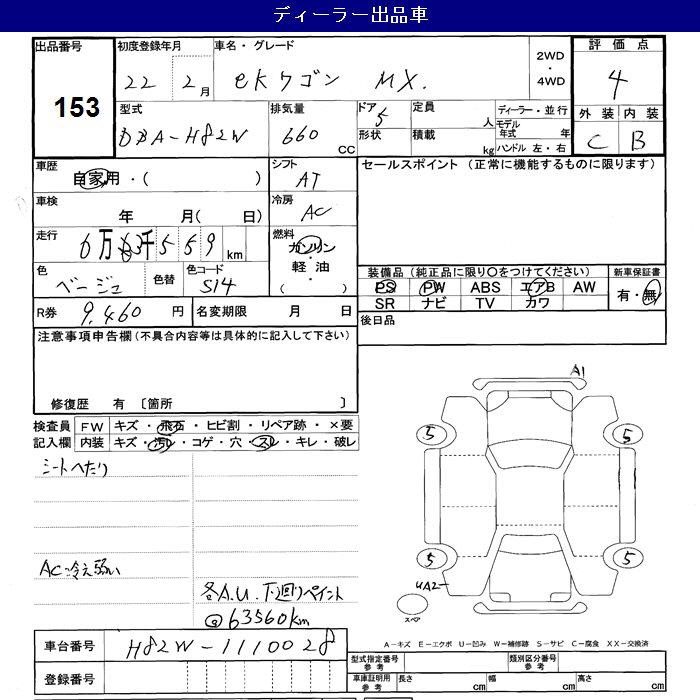 ディーラー出品車
出品番号 初度登録年月 車名・グレード 2WD・4WD 評価点
153 22 2月 eKワゴン MX. 4
型式 排気量 ドア 定員 ディーラー・並行 外装 内装
DBA-H82W 660 CC 5 人 モデル年式 年 C B
形状 積載 kg ハンドル 左・右
車歴 自家用・( ) シフト AT セールスポイント (正常に機能するものに限ります)
車検 年 月( 日) 冷房 AC
走行 6万3千559km 燃料 ガソリン・軽油・( )
色 ベージュ 色替 色コード S14
装備品(純正品に限り〇をつけてください) 新車保証書
PS PW ABS エアB AW 有・無
SR ナビ TV カワ
R券 9,460円 名変期限 月 日 後日品
注意事項申告欄(不具合内容等は具体的に記入して下さい)
修復歴 有 〔箇所 〕
検査員記入欄 FW キズ・飛石・ヒビ割・リペア跡・×要
内装 キズ・汚レ・コゲ・穴・スレ・キレ・破レ
A1
5 5
シートへたり
5 5
AC冷え弱い
UA2
各A.U.下廻りペイント
@63560km
スペア
A-キズ E-エクボ U-凹み W-補修跡 S-サビ C-腐食 XX-交換済
車台番号 H82W-1110028
型式指定番号参考 類別区分番号参考
登録番号 車庫証明用参考 長さ cm 幅 cm 高さ cm